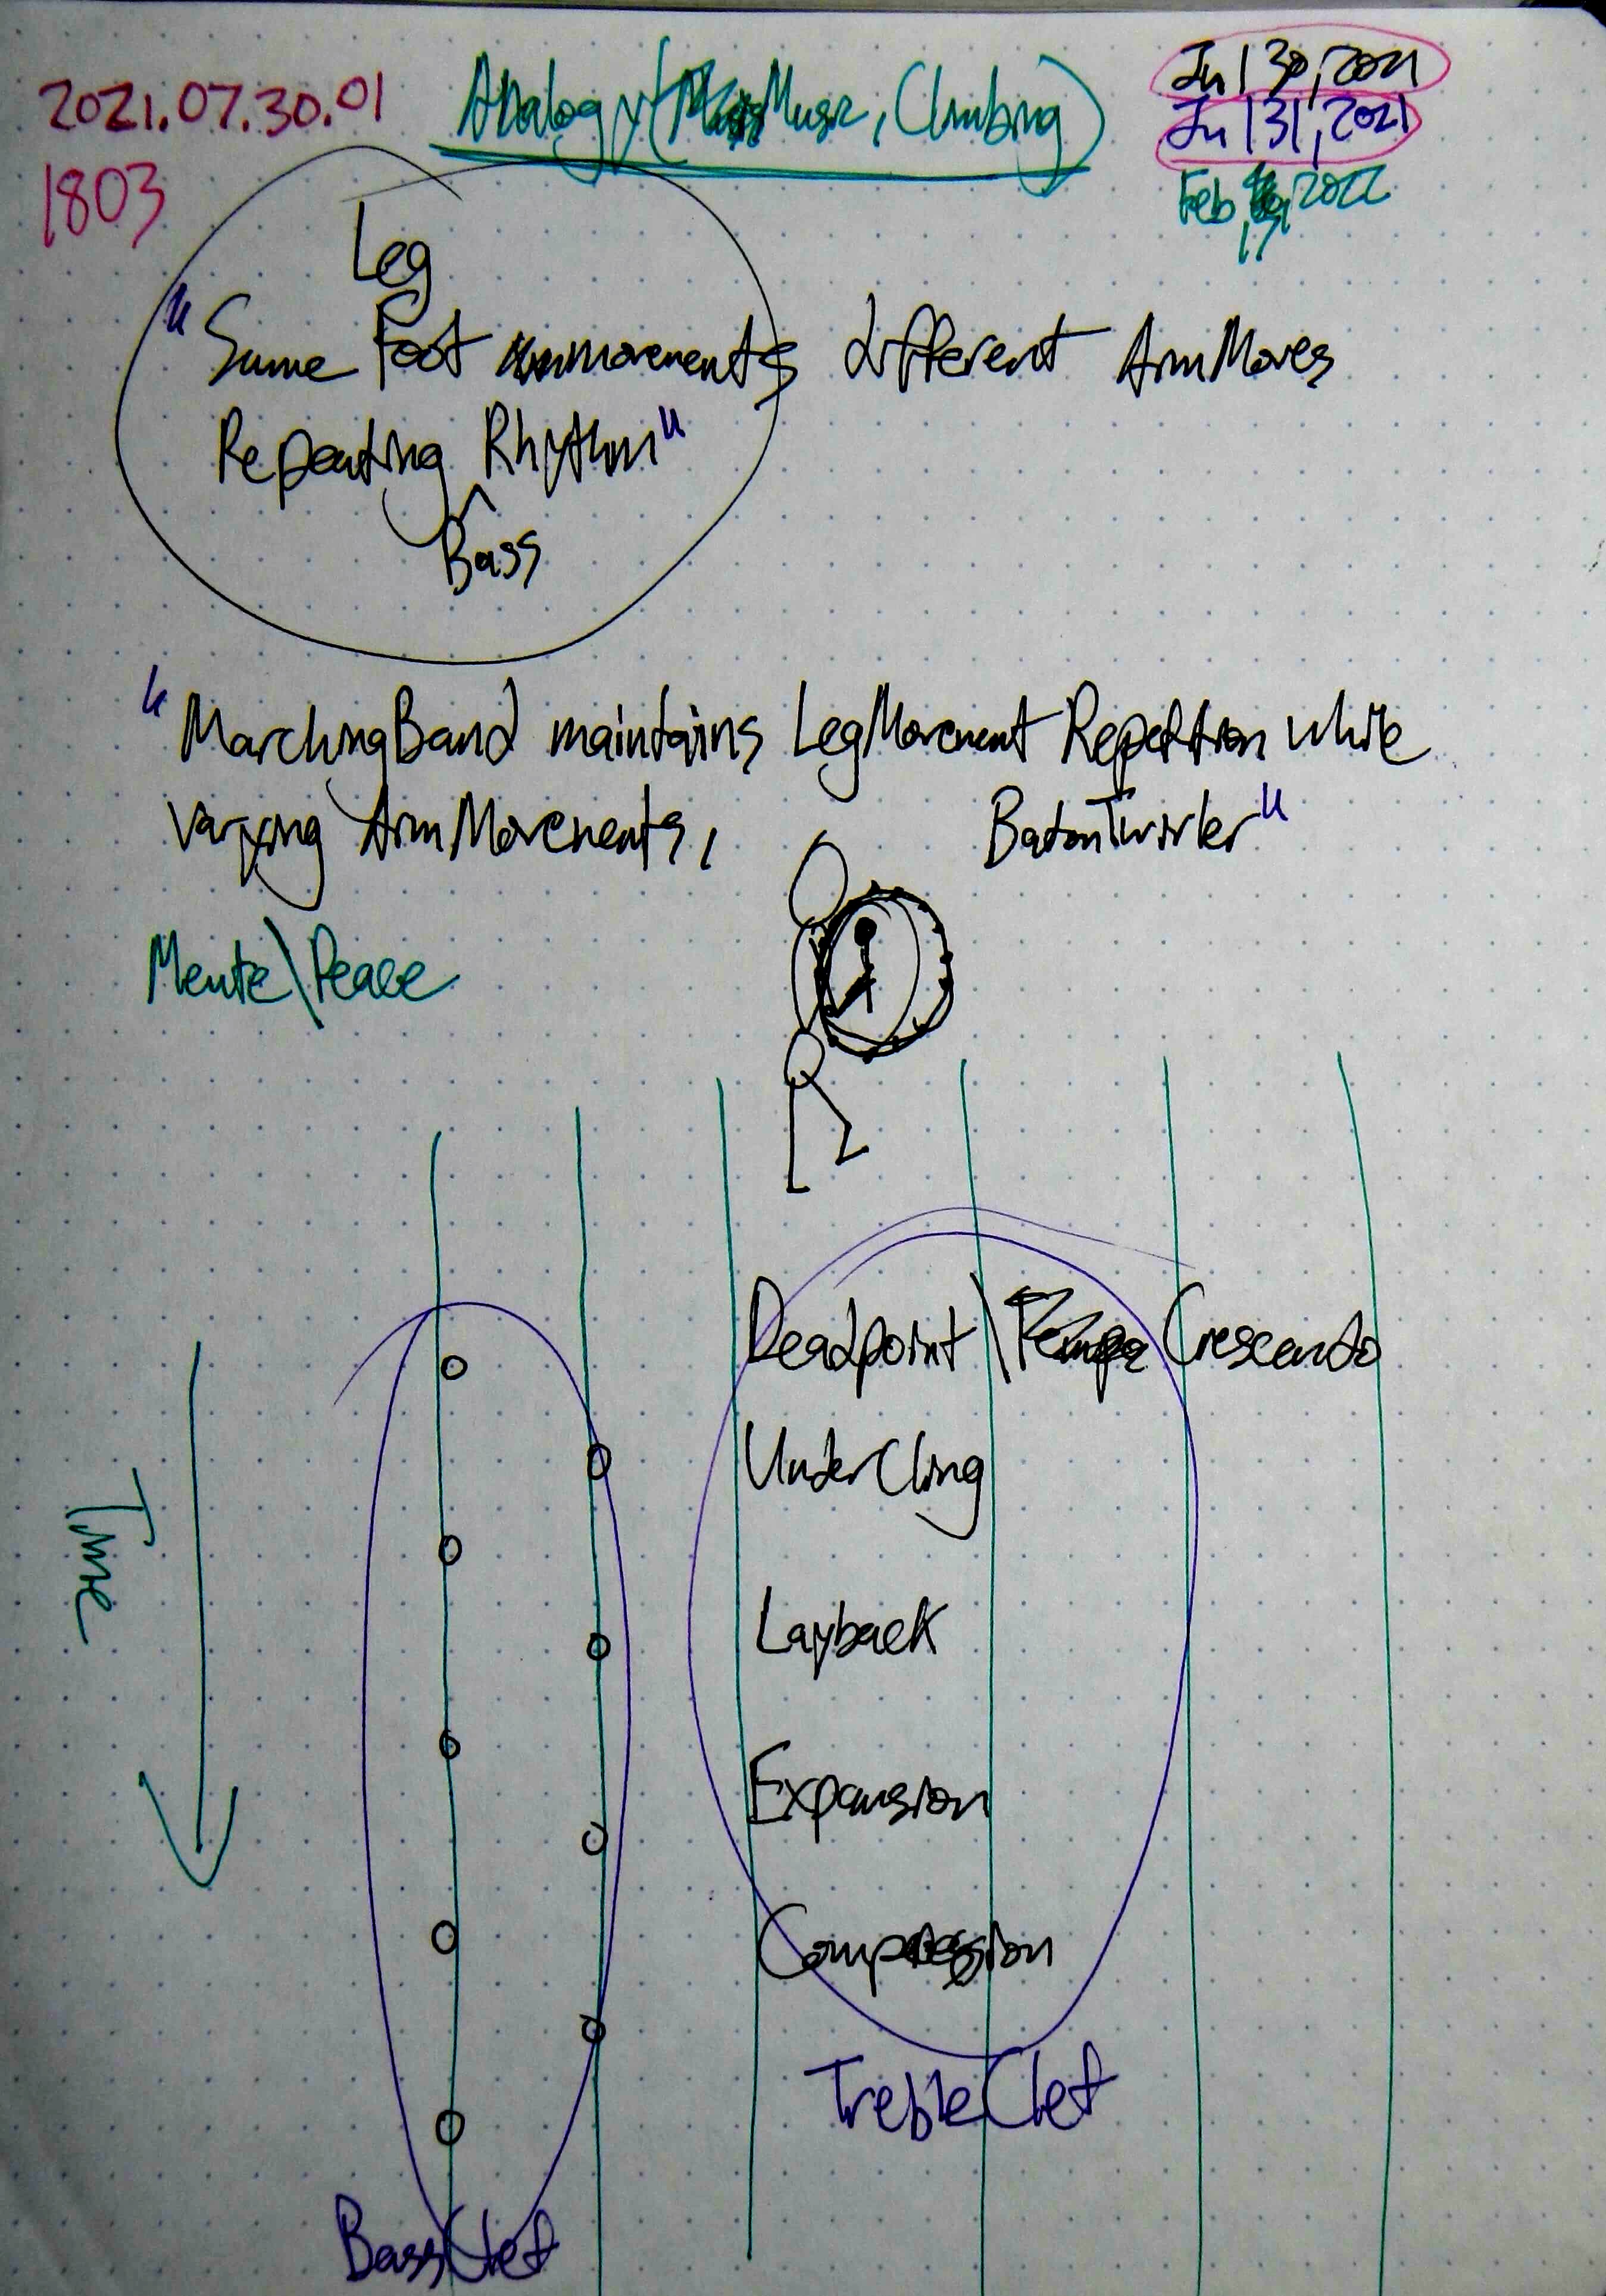 2021.07.30.01
1803
Analogy(Music, Climbing)
Jul 30, 2021
Jul 31, 2021
Feb 2022
Leg
"Same Foot movements different ArmMoves
Repeating Rhythm"
Bass
"MarchingBand maintains LegMovement Repetition while
varying ArmMovements, BatonTwirler"
\Peace
Deadpoint\ Crescendo
UnderCling
Layback
Expansion
Compression
Time
TrebleClef
BassClef